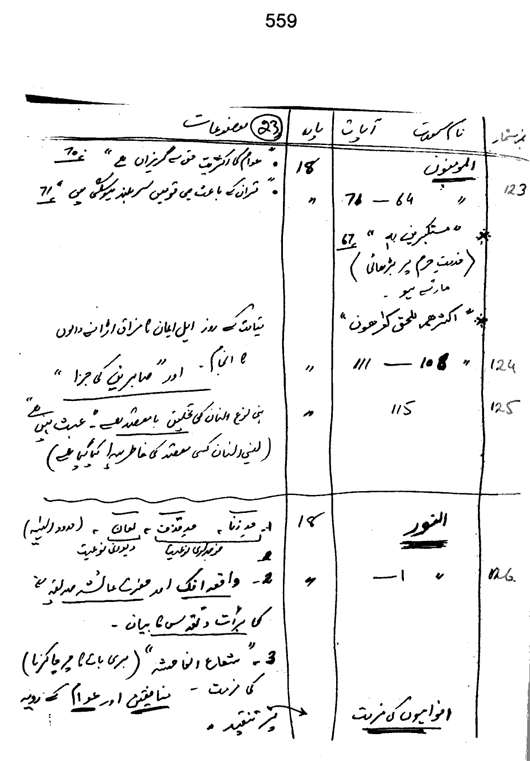 559
نمبر شمار نام سورت آیات پارہ (23) موضوعات
123 المومنون 18 "عوام کی اکثریت حق سے گریزاں ہے" 70
" 64 — 76 " "قرآن کے باعث ہی قومیں سربلند ہو سکتی ہیں" 71
* "مستکبرین بہ" 67
(خدمت حرم پر بڑھائی)
مارتے ہو۔
* "اکثرھم للحق کٰرھون"
قیامت کے روز اہل ایمان کا مذاق اڑانے والوں
124 " 108 — 111 " کا انجام۔ اور "صابرین کی جزا"
125 115 " بنی نوع انسان کی تخلیق بامقصد ہے۔ عبث نہیں ہے"
(یعنی انسان کسی مقصد کی خاطر پیدا کیا گیا ہے)
النور 18 1۔ حدِ زنا، حدِ قذف، لعان، (حدود الٰہیہ)
فوجداری نوعیت دیوانی نوعیت
126 " 1 — " 2۔ واقعہ افک اور حضرت عائشہ صدیقہ
کی برأت و تقدس کا بیان۔
3۔ "شعاع الفاحشہ" (بری بات کا چرچا کرنا)
کی مذمت۔ منافقین اور عوام کے رویہ
افواہوں کی مذمت پر تنقید۔